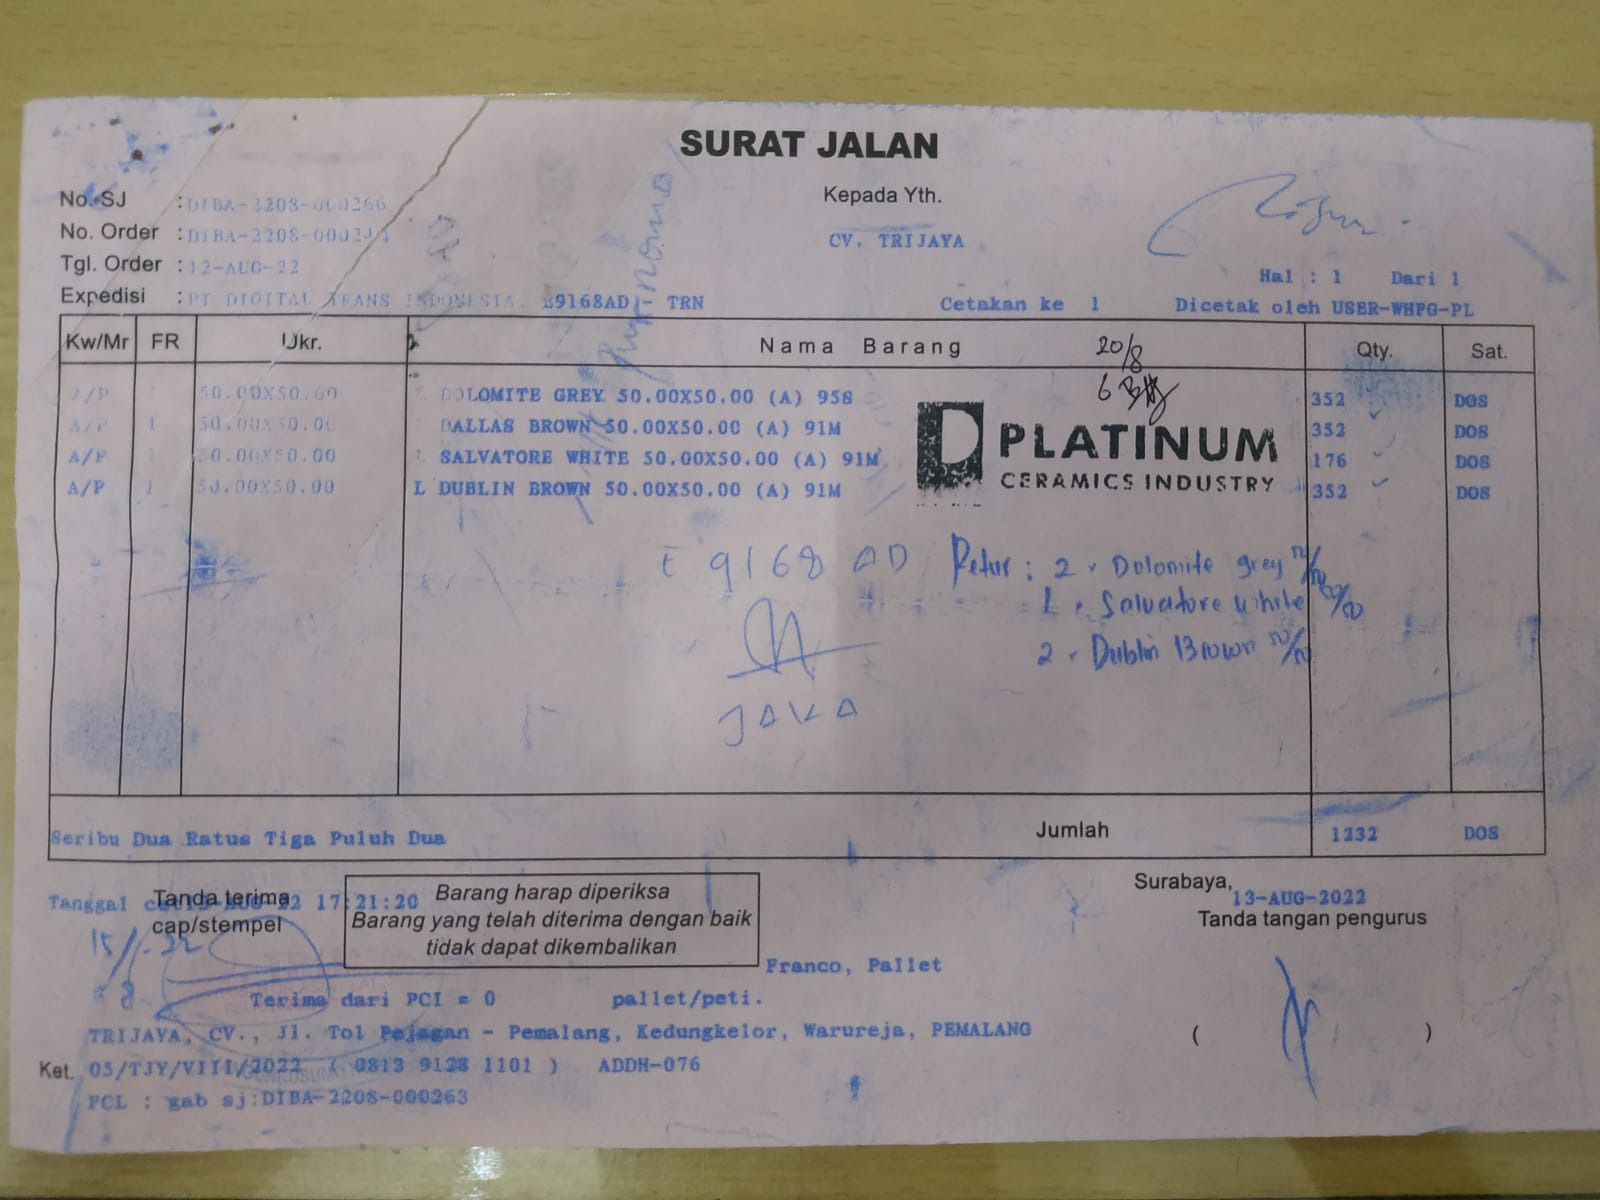 SURAT JALAN
No. SJ : DIBA-2208-000266
Kepada Yth.
No. Order : DIBA-2208-
CV. TRIJAYA
Tgl. Order : 12-AUG-22
Hal : 1 Dari 1
Expedisi : PT DIGITAL TRANS INDONESIA. E9168AD - TRN
Cetakan ke 1 Dicetak oleh USER-WHPG-PL
Purnomo
Kw/Mr FR Ukr. Nama Barang Qty. Sat.
20/8
6
A/P 50.00X50.00 DOLOMITE GREY 50.00X50.00 (A) 958 352 DOS
A/P 1 50.00X50.00 DALLAS BROWN 50.00X50.00 (A) 91M 352 DOS
A/P 1 50.00X50.00 L SALVATORE WHITE 50.00X50.00 (A) 91M 176 DOS
A/P 1 50.00X50.00 L DUBLIN BROWN 50.00X50.00 (A) 91M 352 DOS
PLATINUM
CERAMICS INDUSTRY
E 9168 AD
Retur : 2 . Dolomite grey
1 . Salvatore white
2 . Dublin Brown
JAKA
Seribu Dua Ratus Tiga Puluh Dua Jumlah 1232 DOS
Tanggal 17:21:20
Tanda terima
cap/stempel
15/8-22
Barang harap diperiksa
Barang yang telah diterima dengan baik
tidak dapat dikembalikan
Surabaya, 13-AUG-2022
Tanda tangan pengurus
Franco, Pallet
Terima dari PCI = 0 pallet/peti.
TRIJAYA, CV., Jl. Tol Pejagan - Pemalang, Kedungkelor, Warureja, PEMALANG
( )
Ket. 05/TJY/VIII/2022 ( 0813 9128 1101 ) ADDH-076
PCL : gab sj:DIBA-2208-000263